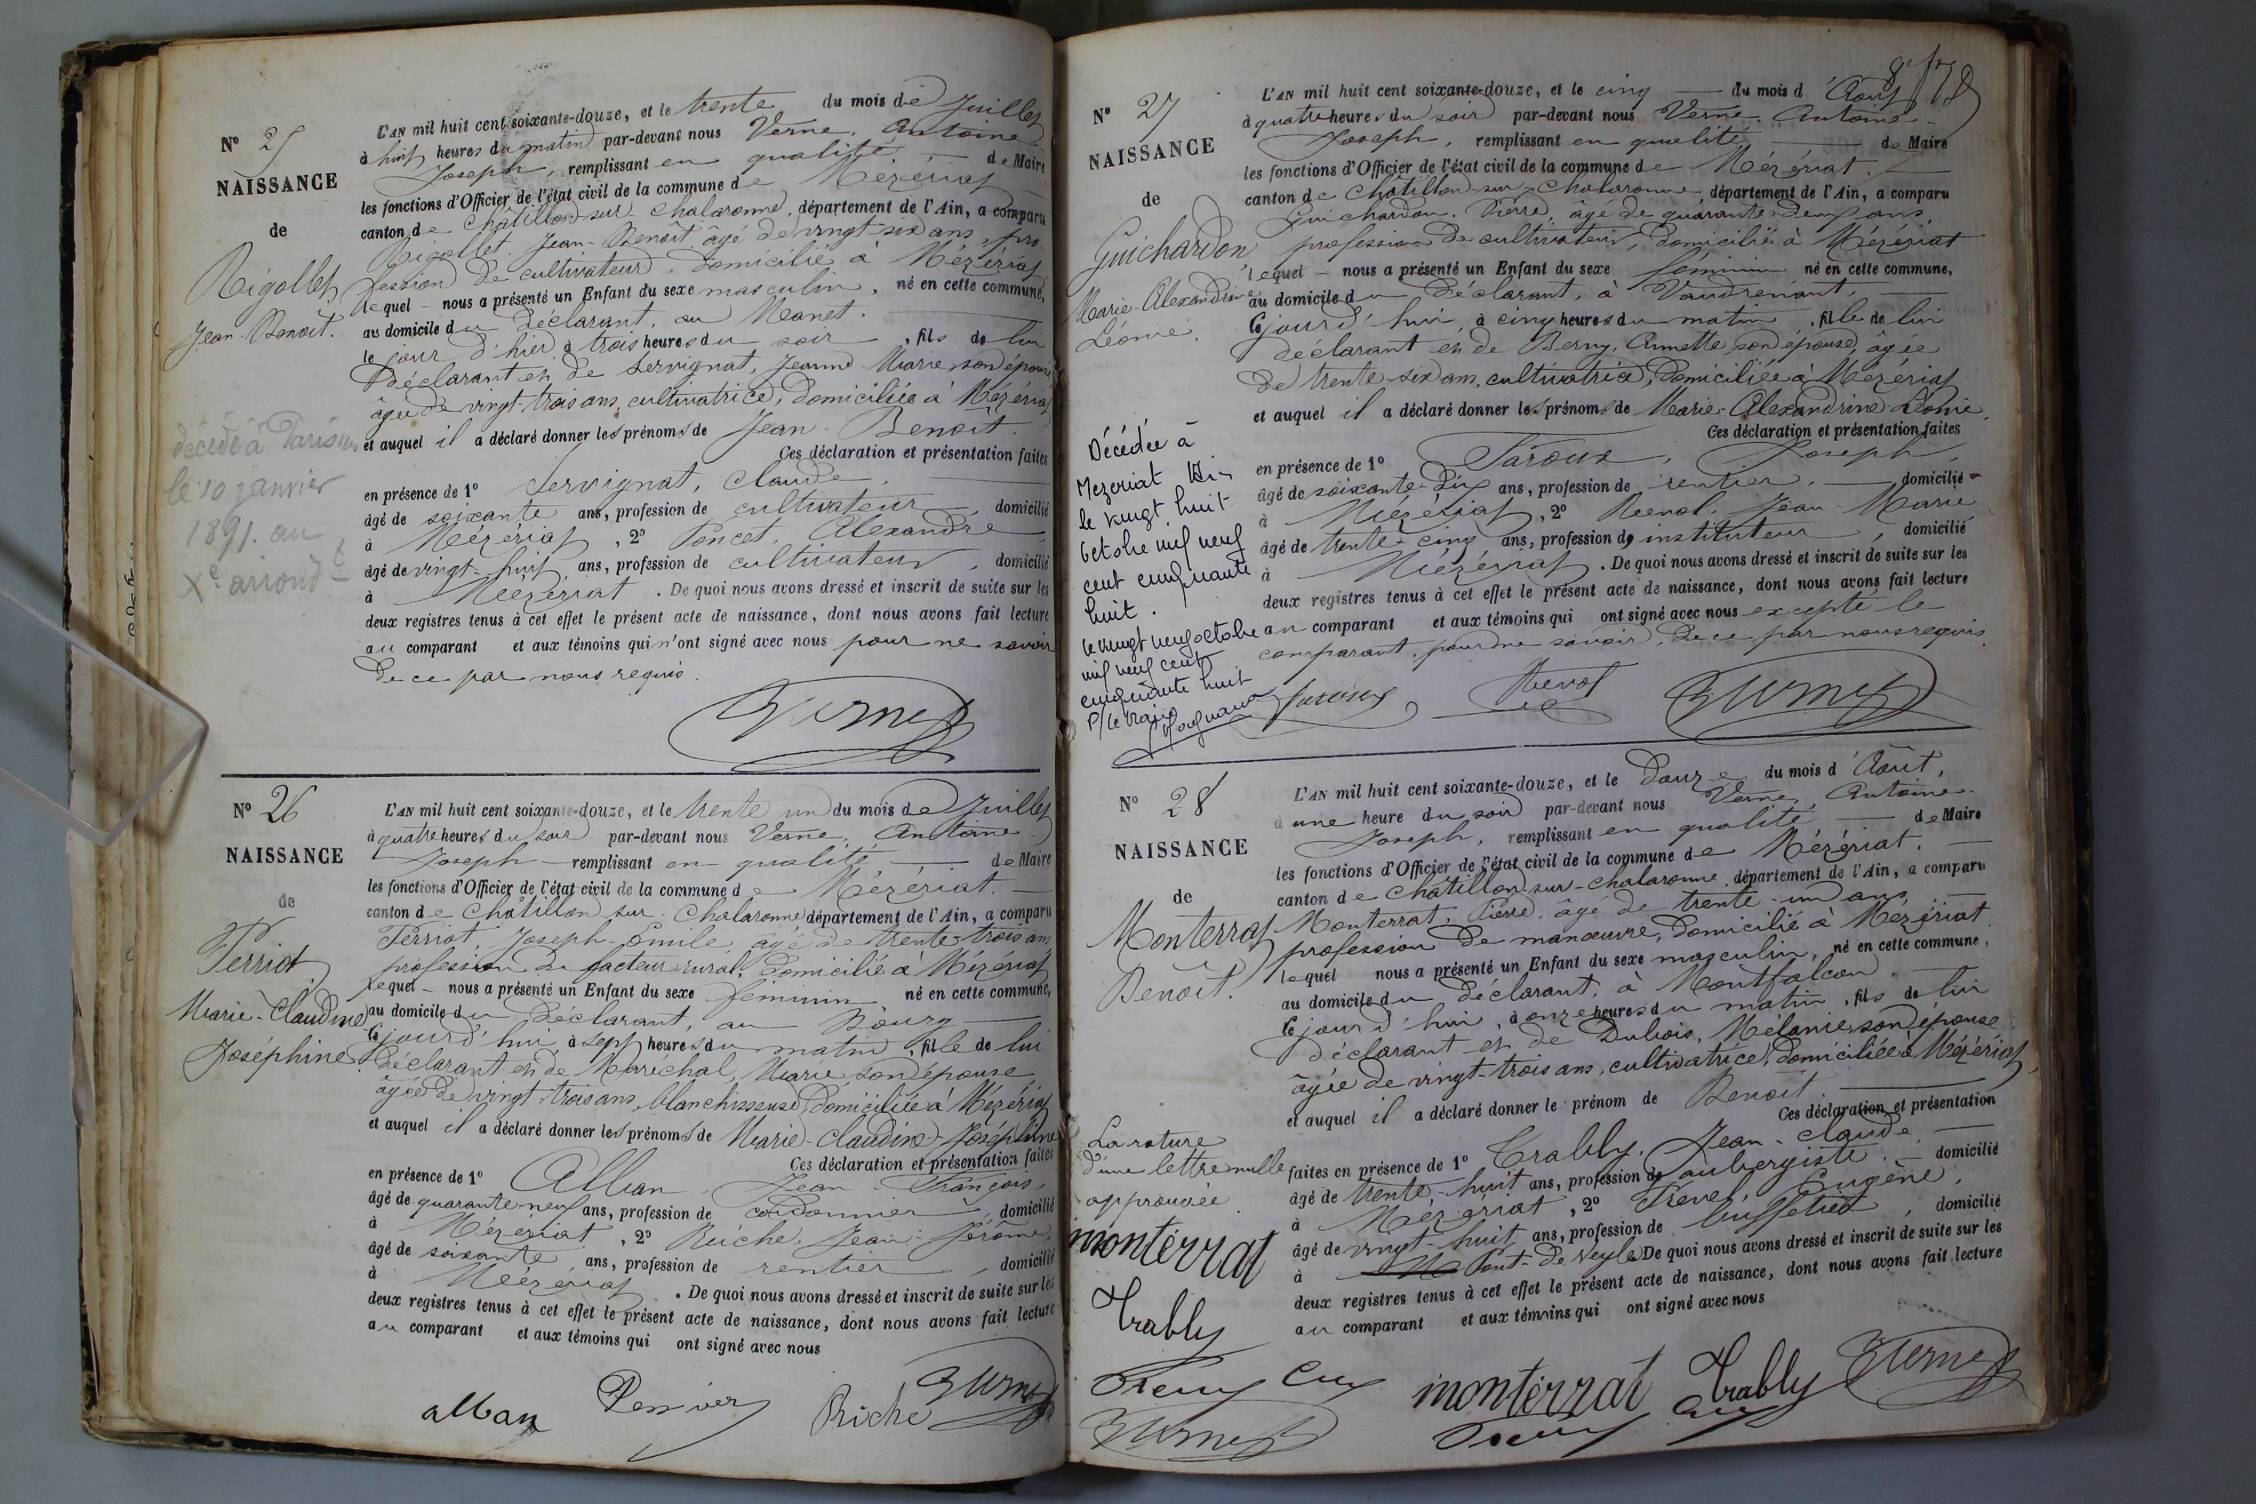 N° 25
NAISSANCE
de
Rigollet
Jean-Benoît.
décédé à Paris
le 10 janvier
1891. au
Xe arrondt
L'AN mil huit cent soixante-douze, et le trente du mois de Juillet
à huit heures du matin par-devant nous Verne, Antoine
Joseph, remplissant en qualité de Maire
les fonctions d'Officier de l'état civil de la commune de Mézériat
canton de Châtillon-sur-Chalaronne, département de l'Ain, a comparu
Rigollet, Jean-Benoît, âgé de vingt-six ans, pro
fession de cultivateur, domicilié à Mézériat
lequel nous a présenté un Enfant du sexe masculin, né en cette commune,
au domicile du déclarant, au Manet.
le jour d'hier à trois heures du soir, fils de lui
déclarant et de Servignat, Jeanne Marie, son épouse
âgée de vingt-trois ans, cultivatrice, domiciliée à Mézériat
et auquel il a déclaré donner les prénoms de Jean-Benoît.
Ces déclaration et présentation faites
en présence de 1° Servignat, Claude,
âgé de soixante ans, profession de cultivateur domicilié
à Mézériat, 2° Poncet, Alexandre,
âgé de vingt-huit ans, profession de cultivateur, domicilié
à Mézériat. De quoi nous avons dressé et inscrit de suite sur les
deux registres tenus à cet effet le présent acte de naissance, dont nous avons fait lecture
au comparant et aux témoins qui n'ont signé avec nous pour ne savoir
de ce par nous requis.
Verne
N° 26
NAISSANCE
de
Perriot
Marie-Claudine
Joséphine.
L'AN mil huit cent soixante-douze, et le trente un du mois de Juillet
à quatre heures du soir par-devant nous Verne, Antoine
Joseph remplissant en qualité de Maire
les fonctions d'Officier de l'état civil de la commune de Mézériat.
canton de Châtillon sur-Chalaronne département de l'Ain, a comparu
Perriot, Joseph-Emile, âgé de trente-trois ans
profession de facteur rural, domicilié à Mézériat
lequel nous a présenté un Enfant du sexe féminin, né en cette commune,
au domicile du déclarant, au Bourg
ce jourd'hui, à sept heures du matin, fille de lui
déclarant et de Maréchal, Marie son épouse
âgée de vingt-trois ans, blanchisseuse, domiciliée à Mézériat
et auquel il a déclaré donner les prénoms de Marie-Claudine-Joséphine
Ces déclaration et présentation faites
en présence de 1° Alban, Jean-François,
âgé de quarante-neuf ans, profession de cordonnier, domicilié
à Mézériat, 2° Riche, Jean-Jérôme,
âgé de soixante ans, profession de rentier, domicilié
à Mézériat. De quoi nous avons dressé et inscrit de suite sur les
deux registres tenus à cet effet le présent acte de naissance, dont nous avons fait lecture
au comparant et aux témoins qui ont signé avec nous
alban Riche Verne
N° 27
NAISSANCE
de
Guichardon
Marie-Alexandrine
Léonie.
Décédée à
Mezeriat Ain
le vingt huit
octobre mil neuf
cent cinquante
huit.
le vingt neuf octobre
mil neuf cent
cinquante huit
P/le Maire
L'AN mil huit cent soixante-douze, et le cinq du mois d'Août
à quatre heures du soir par-devant nous Verne, Antoine
Joseph, remplissant en qualité de Maire
les fonctions d'Officier de l'état civil de la commune de Mézériat.
canton de Châtillon-sur-Chalaronne, département de l'Ain, a comparu
Guichardon, Pierre, âgé de quarante-deux ans,
profession de cultivateur, domicilié à Mézériat
lequel nous a présenté un Enfant du sexe féminin né en cette commune,
au domicile du déclarant, à Vaudrenant,
ce jourd'hui, à cinq heures du matin, fille de lui
déclarant et de Berny, Annette, son épouse, âgée
de trente-six ans, cultivatrice, domiciliée à Mézériat
et auquel il a déclaré donner les prénoms de Marie-Alexandrine Léonie.
Ces déclaration et présentation faites
en présence de 1° Saroux, Joseph,
âgé de soixante-dix ans, profession de rentier, domicilié
à Mézériat, 2° Revol, Jean-Marie
âgé de trente-cinq ans, profession de instituteur, domicilié
à Mézériat. De quoi nous avons dressé et inscrit de suite sur les
deux registres tenus à cet effet le présent acte de naissance, dont nous avons fait lecture
au comparant et aux témoins qui ont signé avec nous excepté le
comparant, pour ne savoir, de ce par nous requis.
Saroux Revol Verne
N° 28
NAISSANCE
de
Monterrat
Benoît.
La rature
d'une lettre nulle
approuvée
monterrat
Trably
Verne
L'AN mil huit cent soixante-douze, et le douze du mois d'Août,
à une heure du soir par-devant nous Verne, Antoine
Joseph, remplissant en qualité de Maire
les fonctions d'Officier de l'état civil de la commune de Mézériat.
canton de Châtillon-sur-Chalaronne, département de l'Ain, a comparu
Monterrat, Pierre, âgé de trente-un ans,
profession de manœuvre, domicilié à Mézériat
lequel nous a présenté un Enfant du sexe masculin, né en cette commune,
au domicile du déclarant, à Montfalcon,
ce jourd'hui, à onze heures du matin, fils de lui
déclarant et de Dubois, Mélanie, son épouse
âgée de vingt-trois ans, cultivatrice, domiciliée à Mézériat,
et auquel il a déclaré donner le prénom de Benoît
Ces déclaration et présentation
faites en présence de 1° Trably, Jean-Claude,
âgé de trente-huit ans, profession de aubergiste domicilié
à Mézériat, 2° Eugène,
âgé de vingt-huit ans, profession de buffetier, domicilié
à Pont-de-Veyle De quoi nous avons dressé et inscrit de suite sur les
deux registres tenus à cet effet le présent acte de naissance, dont nous avons fait lecture
au comparant et aux témoins qui ont signé avec nous
monterrat Trably Verne